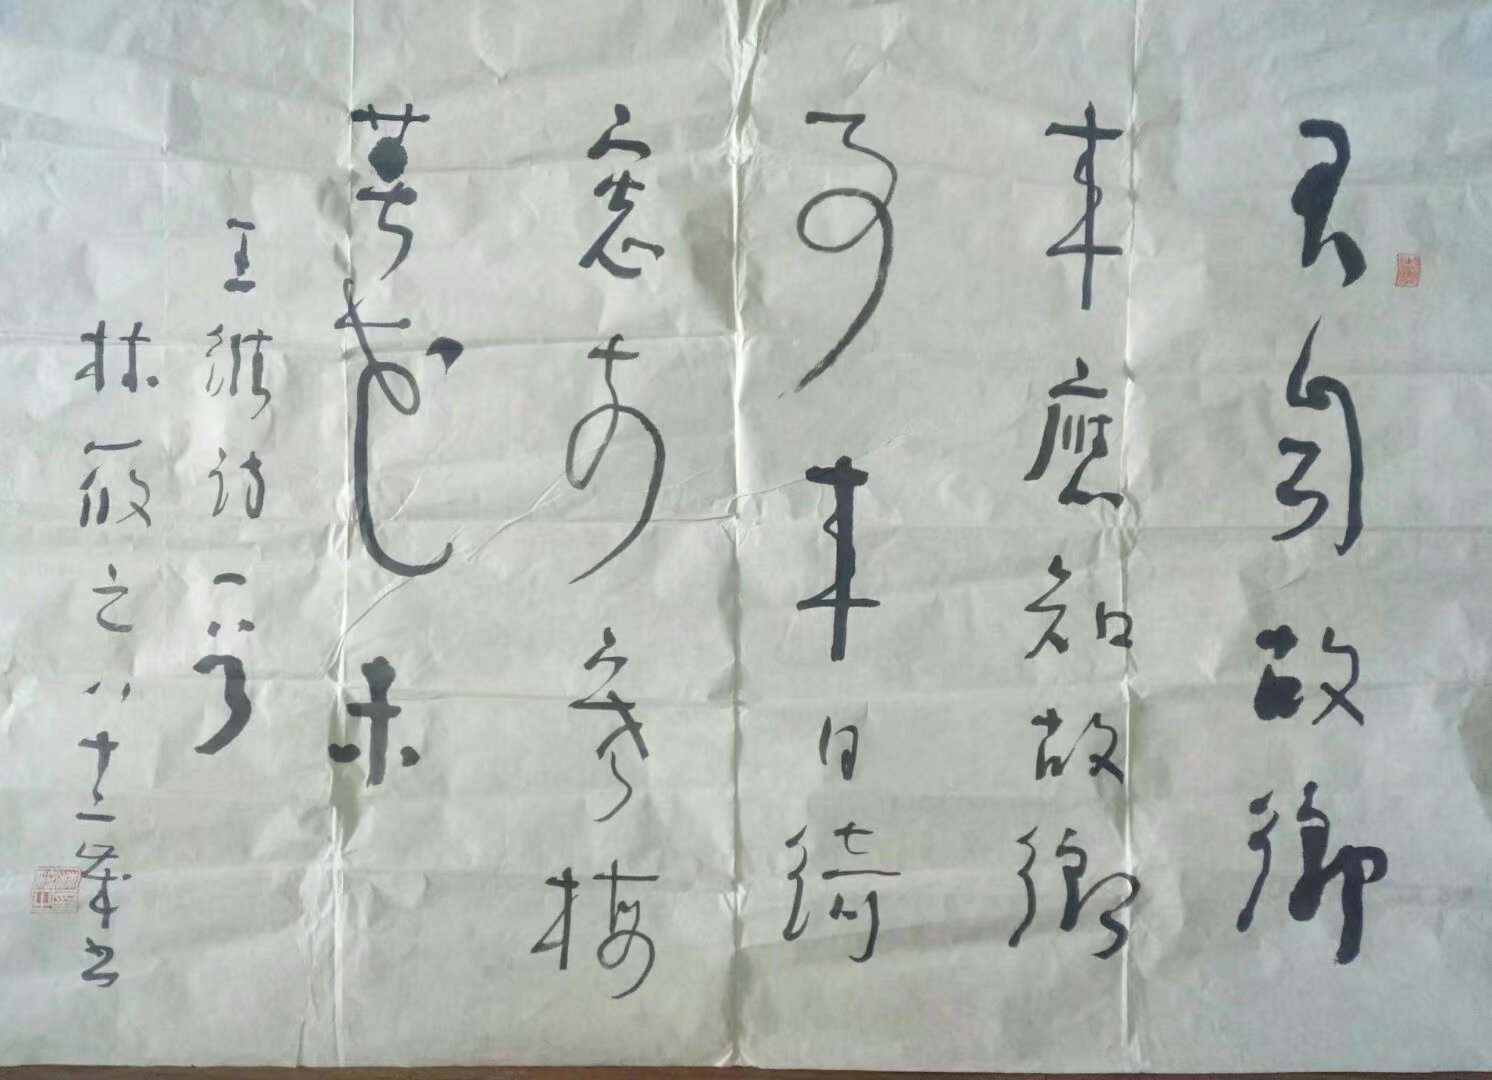 君自故鄉
來應知故鄉
事來日綺
窗前寒梅
著花未
王維詩一首
林筱之八十二歲書